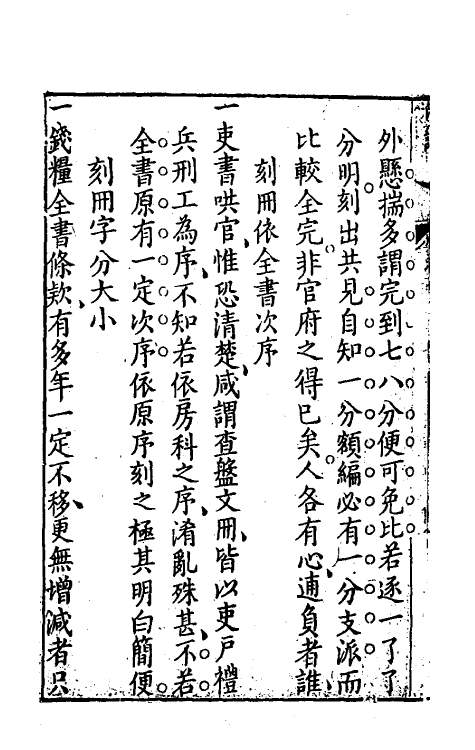 外懸揣多謂完到七八分便可免比若逐一了了
分明刻出共見自知一分額編必有一分支派而
比較全完非官府之得已矣人各有心逋負者誰
刻冊依全書次序
一吏書哄官惟恐清楚咸謂查盤文冊皆以吏戶禮
兵刑工為序不知若依房科之序淆亂殊甚不若
全書原有一定次序依原序刻之極其明白簡便
刻冊字分大小
一錢糧全書條款有多年一定不移更無增減者只